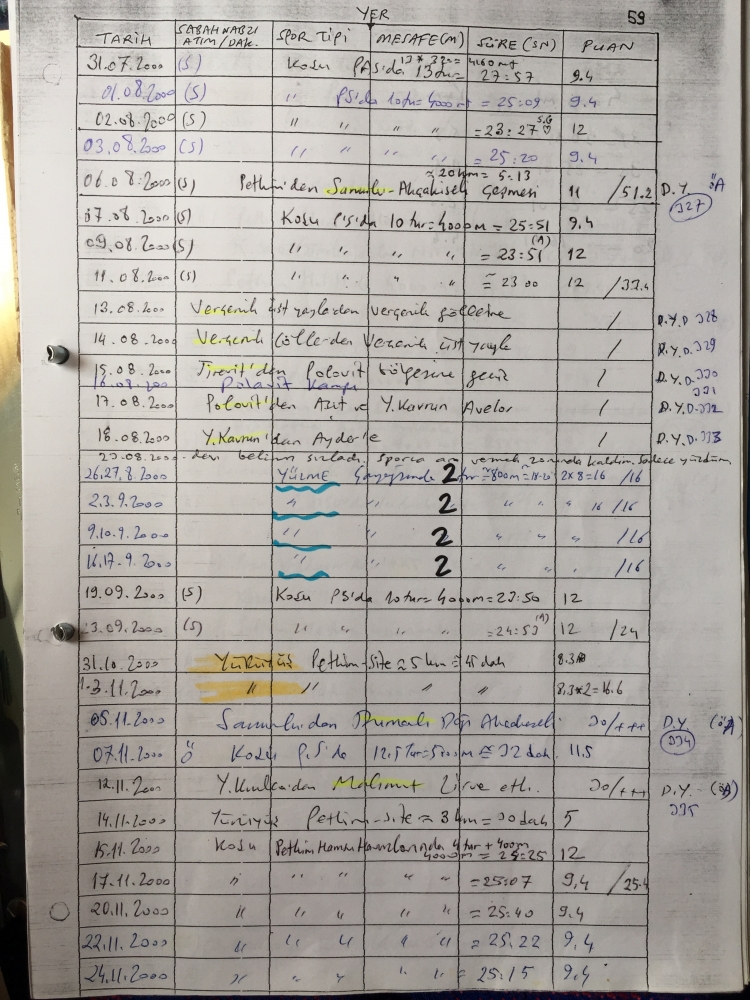 YER 59
TARİH SABAH NABZI ATIM/DAK. SPOR TİPİ MESAFE(M) SÜRE (SN) PUAN
13 * 320= 4160 mt
31.07.2000 (S) Kosu PŞ'da 13 tur= 27:57 9.4
01.08.2000 (S) " PŞ'da 10 tur= 4000 mt = 25:09 9.4
02.08.2000 (S) " " " " = 23:27 12
03.08.2000 (S) " " " " = 25:20 9.4
≈ 20 km = 5:13
06.08.2000 (S) Petkim'den Samurlu- Akçakiseli Çeşmesi 11 /51.2 D.Y. ÖA
327
07.08.2000 (S) Kosu PŞ'da 10 tur=4000m = 25:51 9.4
09.08.2000 (S) " " " " = 23:51 (A) 12
11.08.2000 (S) " " " " = 23 00 12 /33.4
13.08.2000 Verçenik üst yayla'dan Verçenik göllerine / D.Y.D 328
14.08.2000 Verçenik Göller'den Verçenik üst yayla / D.Y.D. 329
15.08.2000 Tirevit'den Polovit bölgesine geçiş / D.Y.D. 330
16.08.2000 Polovit Kampı 331
17.08.2000 Polovit'den Apıt ve Y.Kavrun Avelor / D.Y.D. 332
18.08.2000 Y.Kavrun'dan Ayder'e / D.Y.D. 333
23.08.2000-den belim sızladı. Spora ara vermek zorunda kaldım. Sadece yüzdüm.
26,27.8.2000 YÜZME 2 tur =800m 2x8=16 /16
2.3.9.2000 " " 2 " " " 16 /16
9.10.9.2000 " " 2 " " " /16
16.17.9.2000 " " 2 " " " /16
19.09.2000 (S) Kosu PŞ'da 10 tur= 4000m=23:50 12
23.09.2000 (S) " " " " =24:53 (A) 12 /24
31.10.2000 Yürüyüş Petkim-site ≈ 5 km = 45 dak 8.3
1.3.11.2000 " " " " 8.3*2=16.6
05.11.2000 Samurlu'dan Dumanlı Dağı 30/+++ D.Y (ÖA)
334
07.11.2000 Ö Kosu P.Ş'da 12.5 Tur=5000m ≅ 32 dak. 11.5
12.11.2000 Mahmut Zirve etk. 30/+++ D.Y. (ÖA)
335
14.11.2000 Yürüyüş Petkim-site ≈ 3 km = 30 dak 5
15.11.2000 Kosu Petkim Hamsu Havuzlarında 4 tur + 400m
4000m = 25:25 12
17.11.2000 " " " " " =25:07 9,4 /25.4
20.11.2000 " " " " " =25:40 9.4
22.11.2000 " " " " " =25.22 9,4
24.11.2000 " " " " " =25:15 9,4